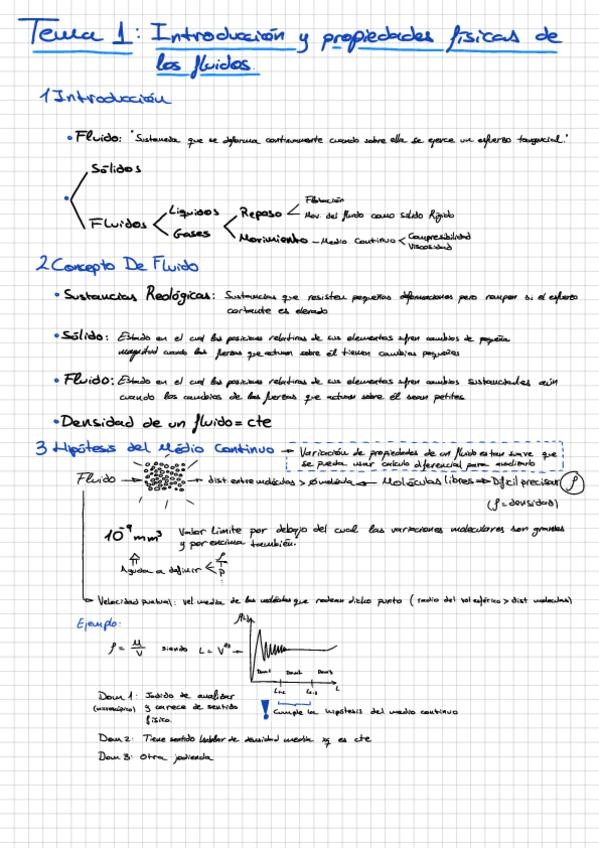 Tema 1: Introducción y propiedades físicas de
los fluidos.
1 Introducción
• Fluido: "Sustancia que se deforma continuamente cuando sobre ella se ejerce un esfuerzo tangencial."
Sólidos
Fluidos
Liquidos
Gases
Reposo
Flotación
Mov. del fluido como sólido Rígido
Movimiento – Medio Continuo
Compresibilidad
Viscosidad
2 Concepto De Fluido
• Sustancias Reológicas: Sustancias que resisten pequeñas deformaciones pero rompen si el esfuerzo
cortante es elevado
• Sólido: Estado en el cual las posiciones relativas de sus elementos sufren cambios de pequeña
magnitud cuando las fuerzas que actuan sobre él tienen cambios pequeños
• Fluido: Estado en el cual las posiciones relativas de sus elementos sufren cambios sustanciales aún
cuando los cambios de las fuerzas que actuan sobre él sean
• Densidad de un fluido = cte
3 Hipótesis del Médio Continuo → Variación de propiedades de un fluido es tan suave que
se pueda usar calculo diferencial para analizarlo
Fluido → → dist entre moléculas > ømolécula → Moléculas libres ⇒ Dificil precisar ρ
(ρ = densidad)
10⁻⁹ mm³ Valor Limite por debajo del cual las variaciones moleculares son grandes
y por encima también.
Ayuda a definir < ρ
P
→ Velocidad puntual: vel media de las moléculas que rodean dicho punto (radio del vol esférico > dist moléculas)
Ejemplo:
ρ = M/V siendo L = V¹ᐟ³ →
Dom 1 Dom 2 Dom 3
L
Dom 1: de analizar
(microscópico) y carece de sentido
físico.
! Cumple la hipótesis del medio continuo
Dom 2: Tiene sentido hablar de densidad media xq es cte
Dom 3: Otra